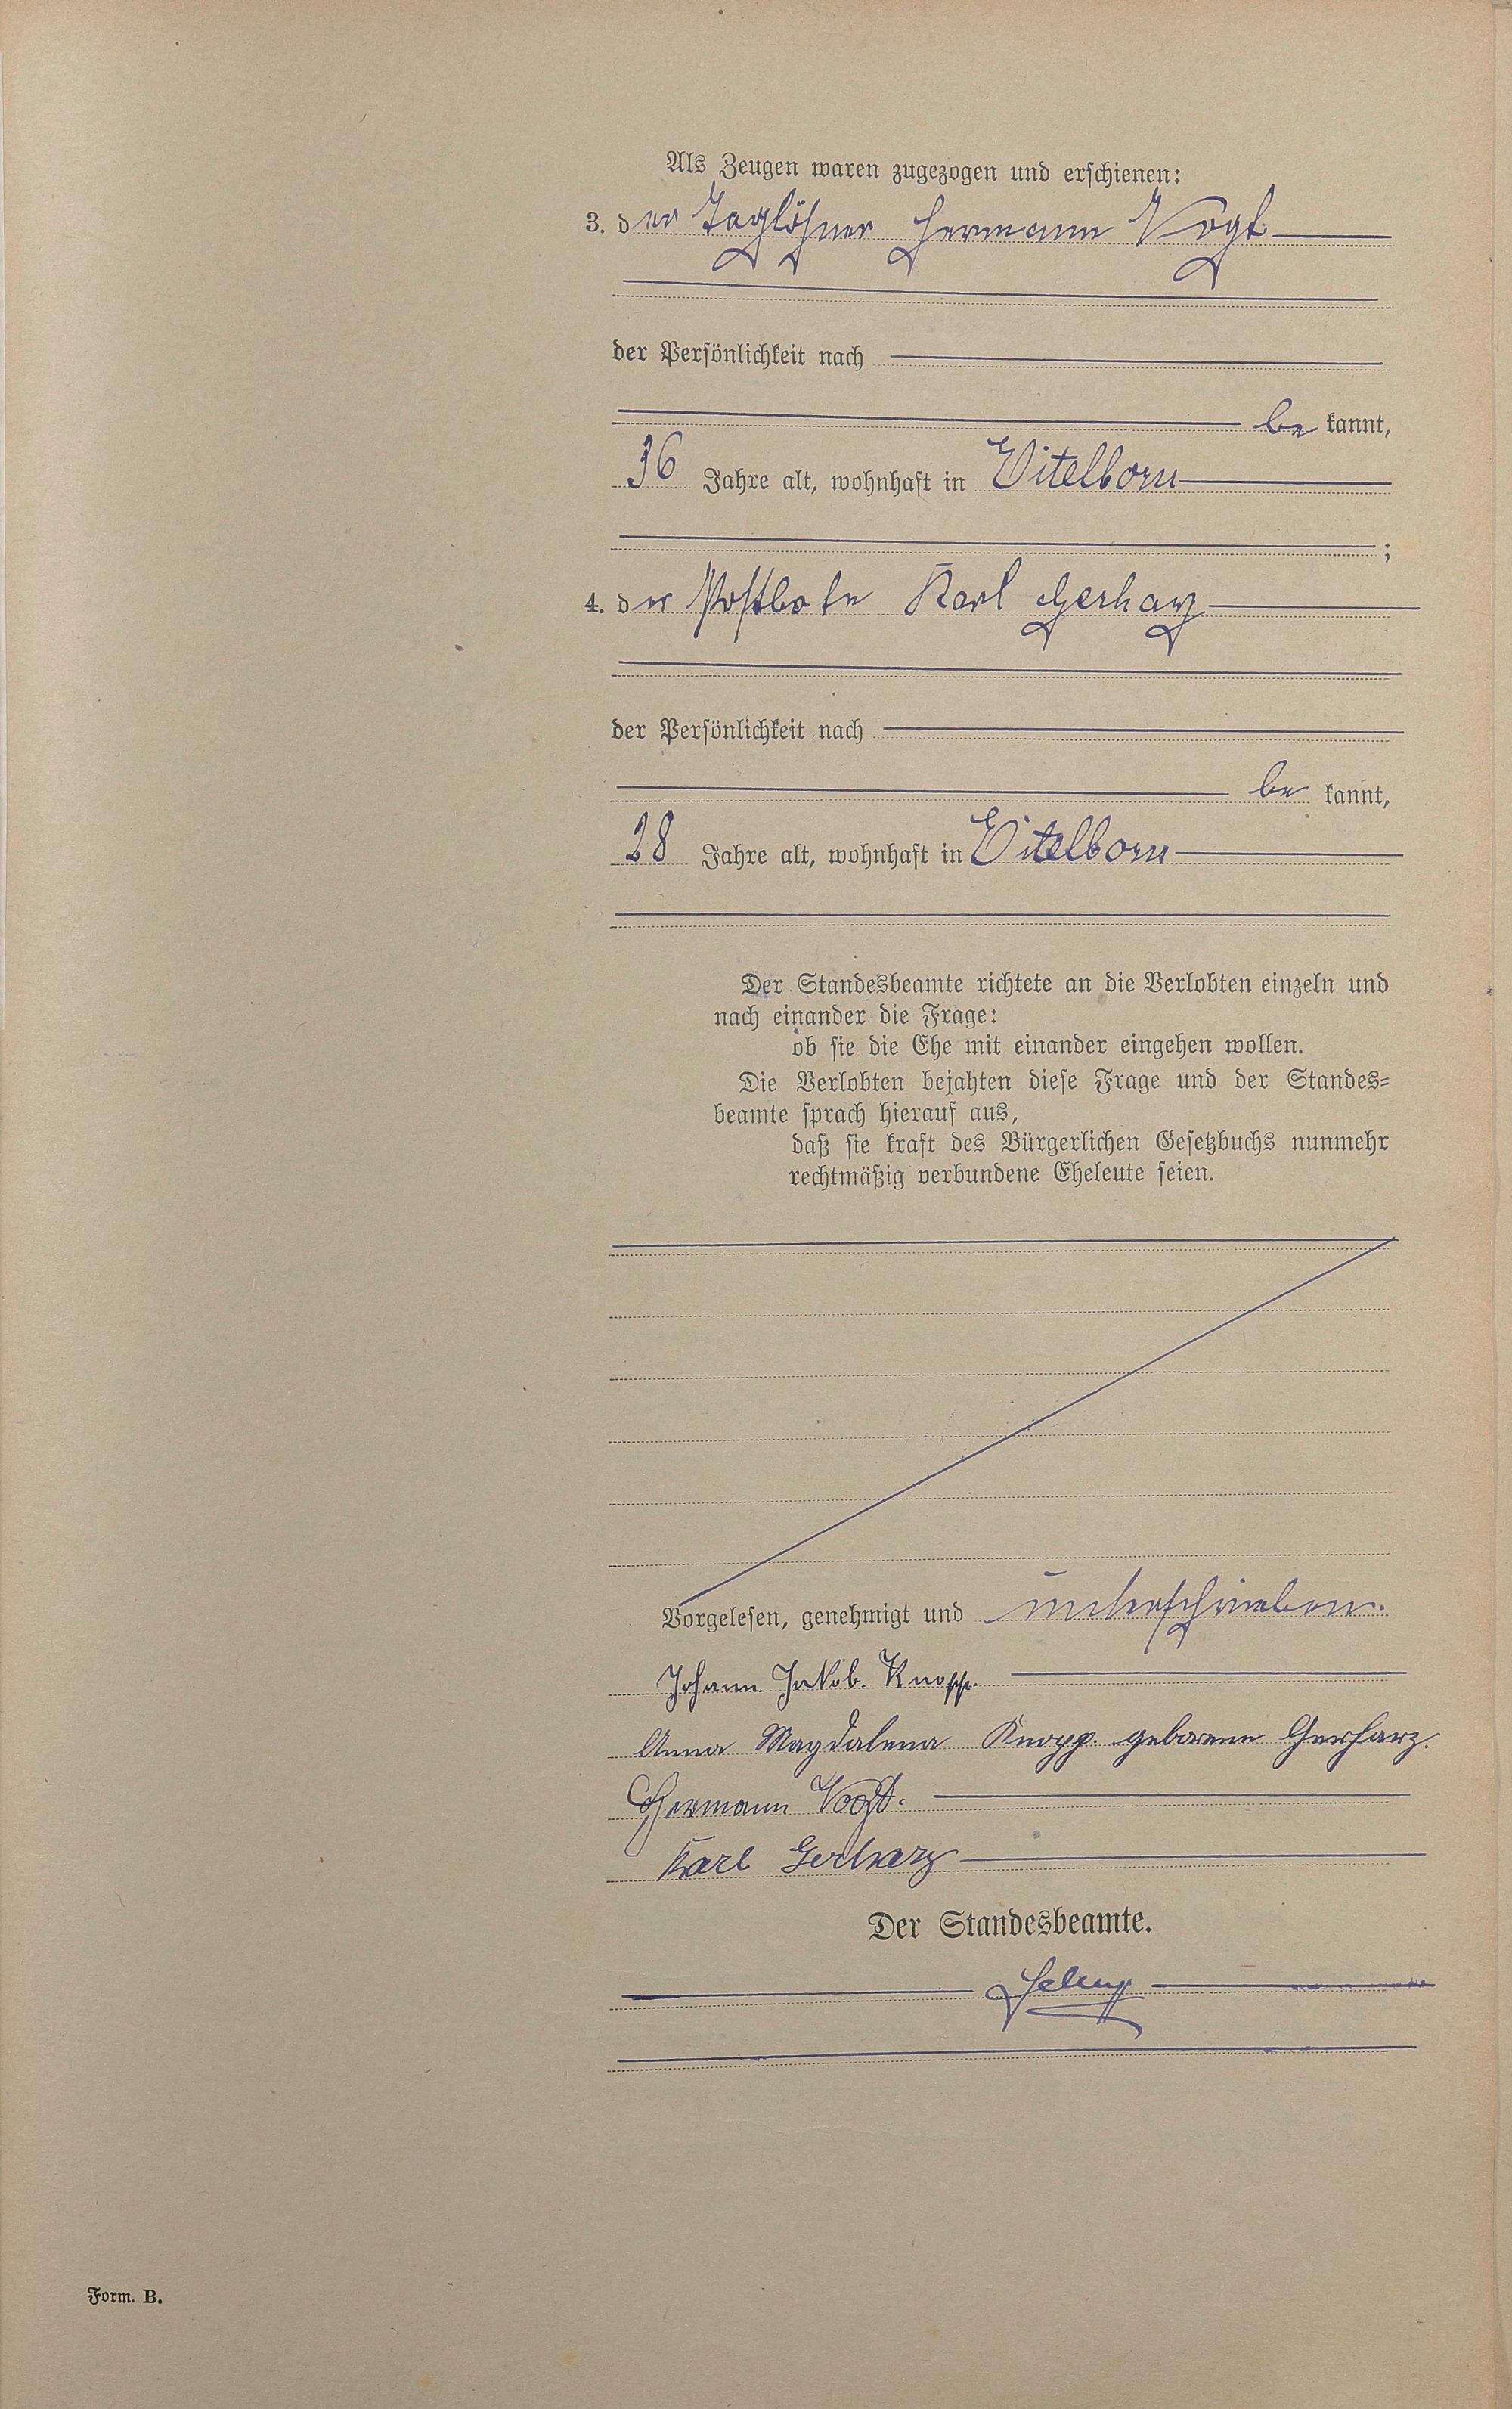 Als Zeugen waren zugezogen und erschienen:
3. der Taglöhner Hermann Vogt
der Persönlichkeit nach
be kannt,
36 Jahre alt, wohnhaft in Eitelborn
;
4. der Postbote Karl Gerharz
der Persönlichkeit nach
be kannt,
28 Jahre alt, wohnhaft in Eitelborn
Der Standesbeamte richtete an die Verlobten einzeln und
nach einander die Frage:
ob sie die Ehe mit einander eingehen wollen.
Die Verlobten bejahten diese Frage und der Standes=
beamte sprach hierauf aus,
daß sie kraft des Bürgerlichen Gesetzbuchs nunmehr
rechtmäßig verbundene Eheleute seien.
Vorgelesen, genehmigt und unterschrieben.
Johann Jakob. Knopp.
Anna Magdalena Knopp. geborene Gerharz.
Hermann Vogt.
Karl Gerharz
Der Standesbeamte.
Form. B.